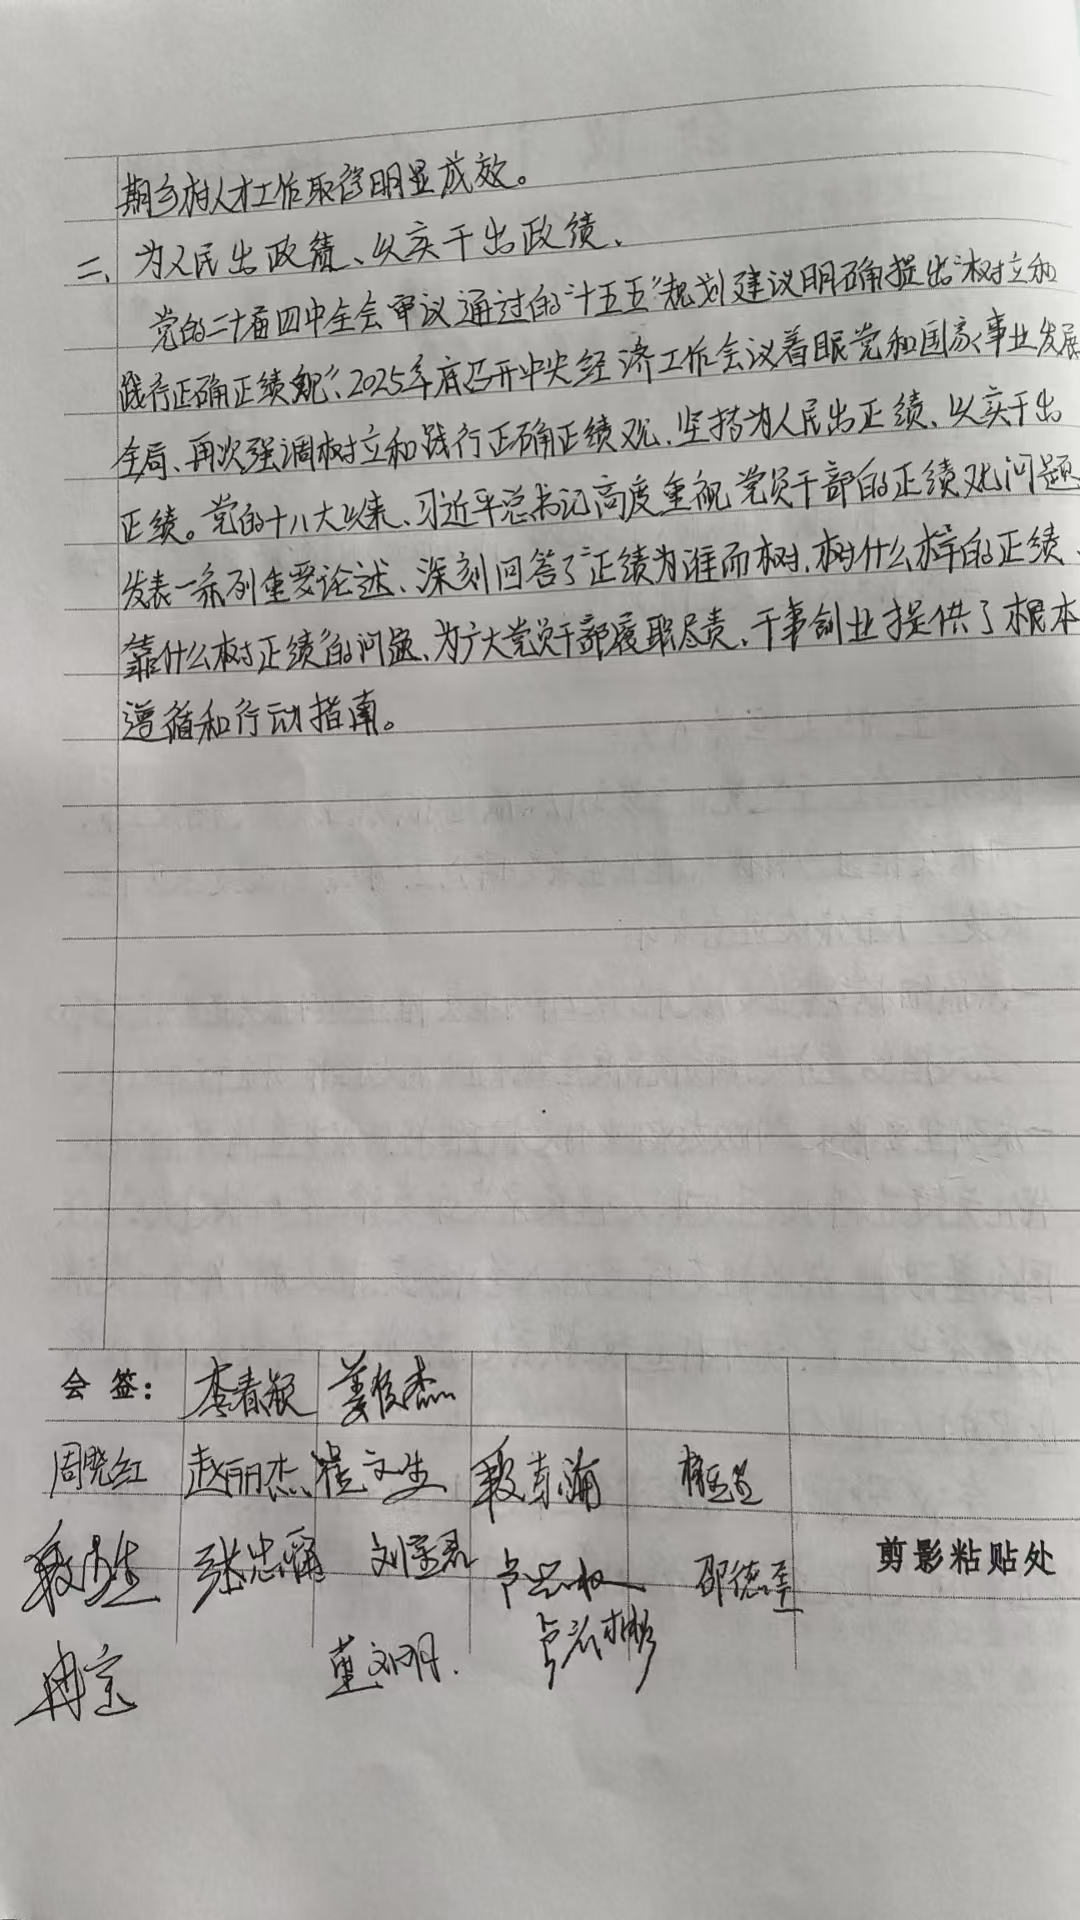 期乡村人才工作取得明显成效。
二、为人民出政绩、以实干出政绩、
党的二十届四中全会审议通过的“十五五”规划建议明确提出“树立和
践行正确正绩观”、2025年底召开中央经济工作会议着眼党和国家事业发展
全局、再次强调树立和践行正确正绩观、坚持为人民出正绩、以实干出
正绩。党的十八大以来、习近平总书记高度重视党员干部的正绩观问题
发表一系列重要论述、深刻回答了“正绩为谁而树、树什么样的正绩、
靠什么树正绩”的问题、为广大党员干部履职尽责、干事创业提供了根本
遵循和行动指南。
会 签： 李春颖 姜俊杰
周晓红 赵丽杰 崔文生
张忠涌 邵德军
剪影粘贴处
冉宗 董文明.